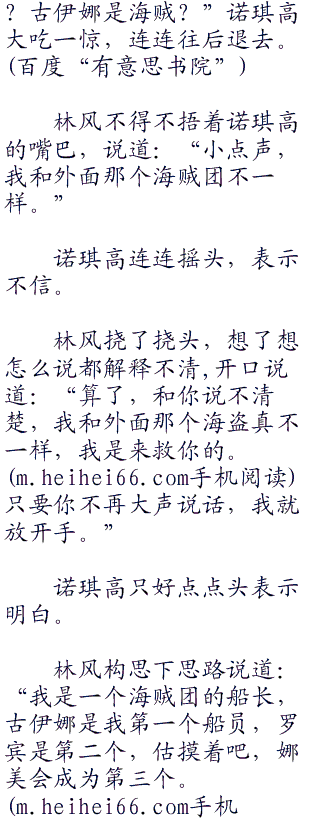 ？古伊娜是海贼？”诺琪高
大吃一惊，连连往后退去。
(百度“有意思书院”)
林风不得不捂着诺琪高
的嘴巴，说道：“小点声，
我和外面那个海贼团不一
样。”
诺琪高连连摇头，表示
不信。
林风挠了挠头，想了想
怎么说都解释不清,开口说
道：“算了，和你说不清
楚，我和外面那个海盗真不
一样，我是来救你的。
(m.heihei66.com手机阅读)
只要你不再大声说话，我就
放开手。”
诺琪高只好点点头表示
明白。
林风构思下思路说道：
“我是一个海贼团的船长，
古伊娜是我第一个船员，罗
宾是第二个，估摸着吧，娜
美会成为第三个。
(m.heihei66.com手机